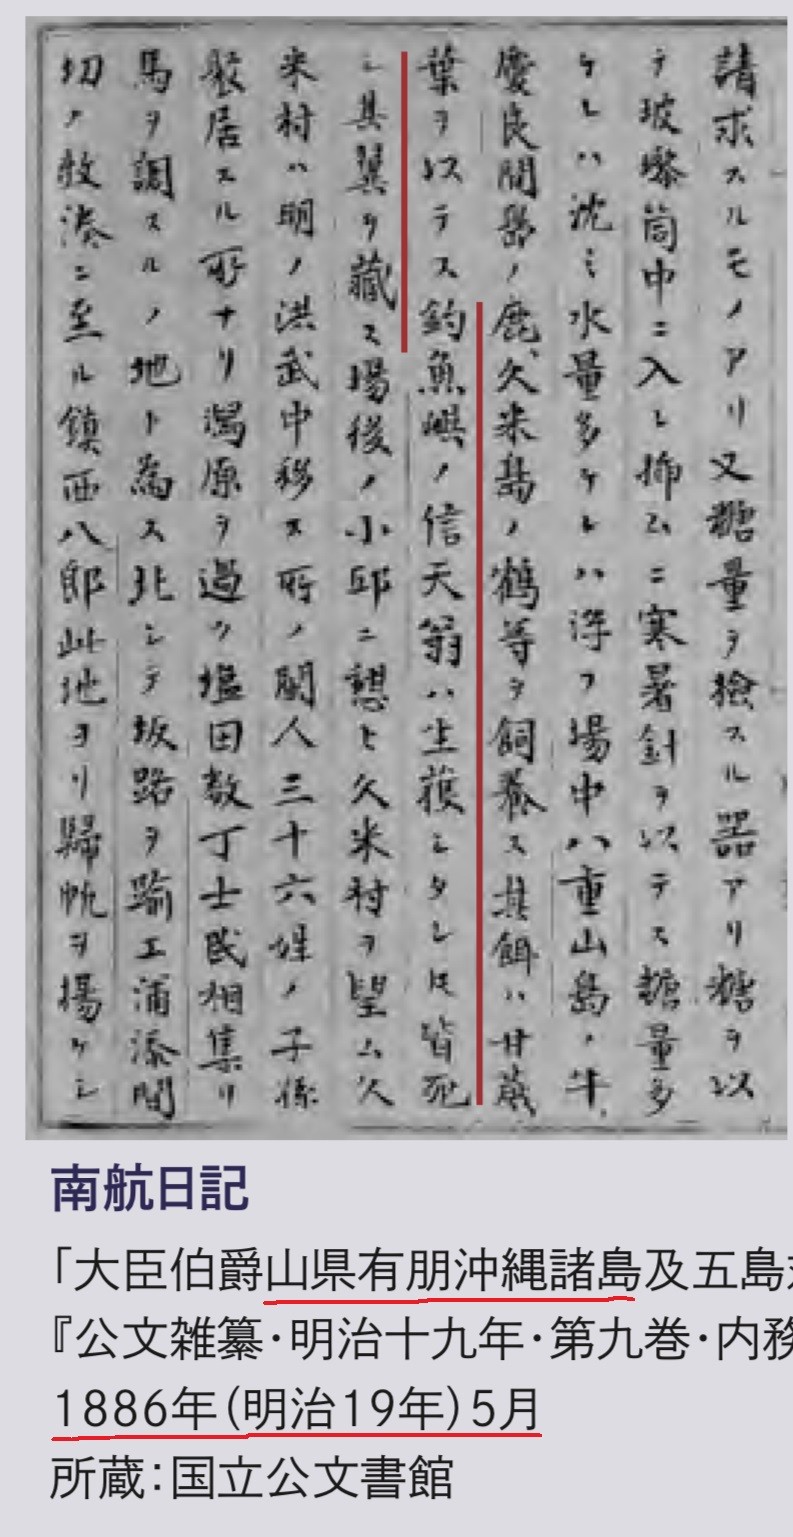 請求スルモノアリ又糖量ヲ検スル器アリ糖ヲ以
テ玻瓈筒中ニ入レ抑ムニ寒暑針ヲ以テス糖量多
ケレハ沈ミ水量多ケレハ浮フ場中ハ重山島ノ牛
慶良間島ノ鹿久米島ノ鶴等ヲ飼養ス其餌ハ甘蔗
葉ヲ以テス釣魚嶼ノ信天翁ハ生獲シタレ𪜈皆死
シ其翼ヲ蔵ス場後ノ小邱ニ憩ヒ久米村ヲ望ム久
米村ハ明ノ洪武中移ス所ノ閩人三十六姓ノ子孫
聚居スル所ナリ潟原ヲ過ツ塩田数丁士民相集リ
馬ヲ調スルノ地ト為ス北シテ坂路ヲ踰エ浦添間
切ノ牧湊ニ至ル鎮西八郎此地ヨリ帰帆ヲ揚ケシ
南航日記
「大臣伯爵山県有朋沖縄諸島及五島
『公文雑纂・明治十九年・第九巻・内務
1886年(明治19年)5月
所蔵:国立公文書館